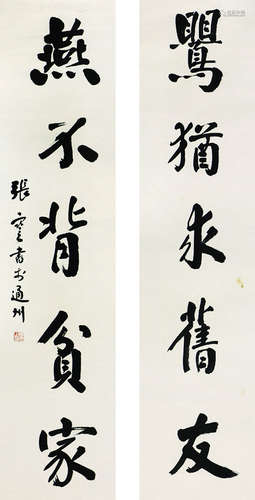 鷪猶求舊友
燕不背貧家
張謇書於通州